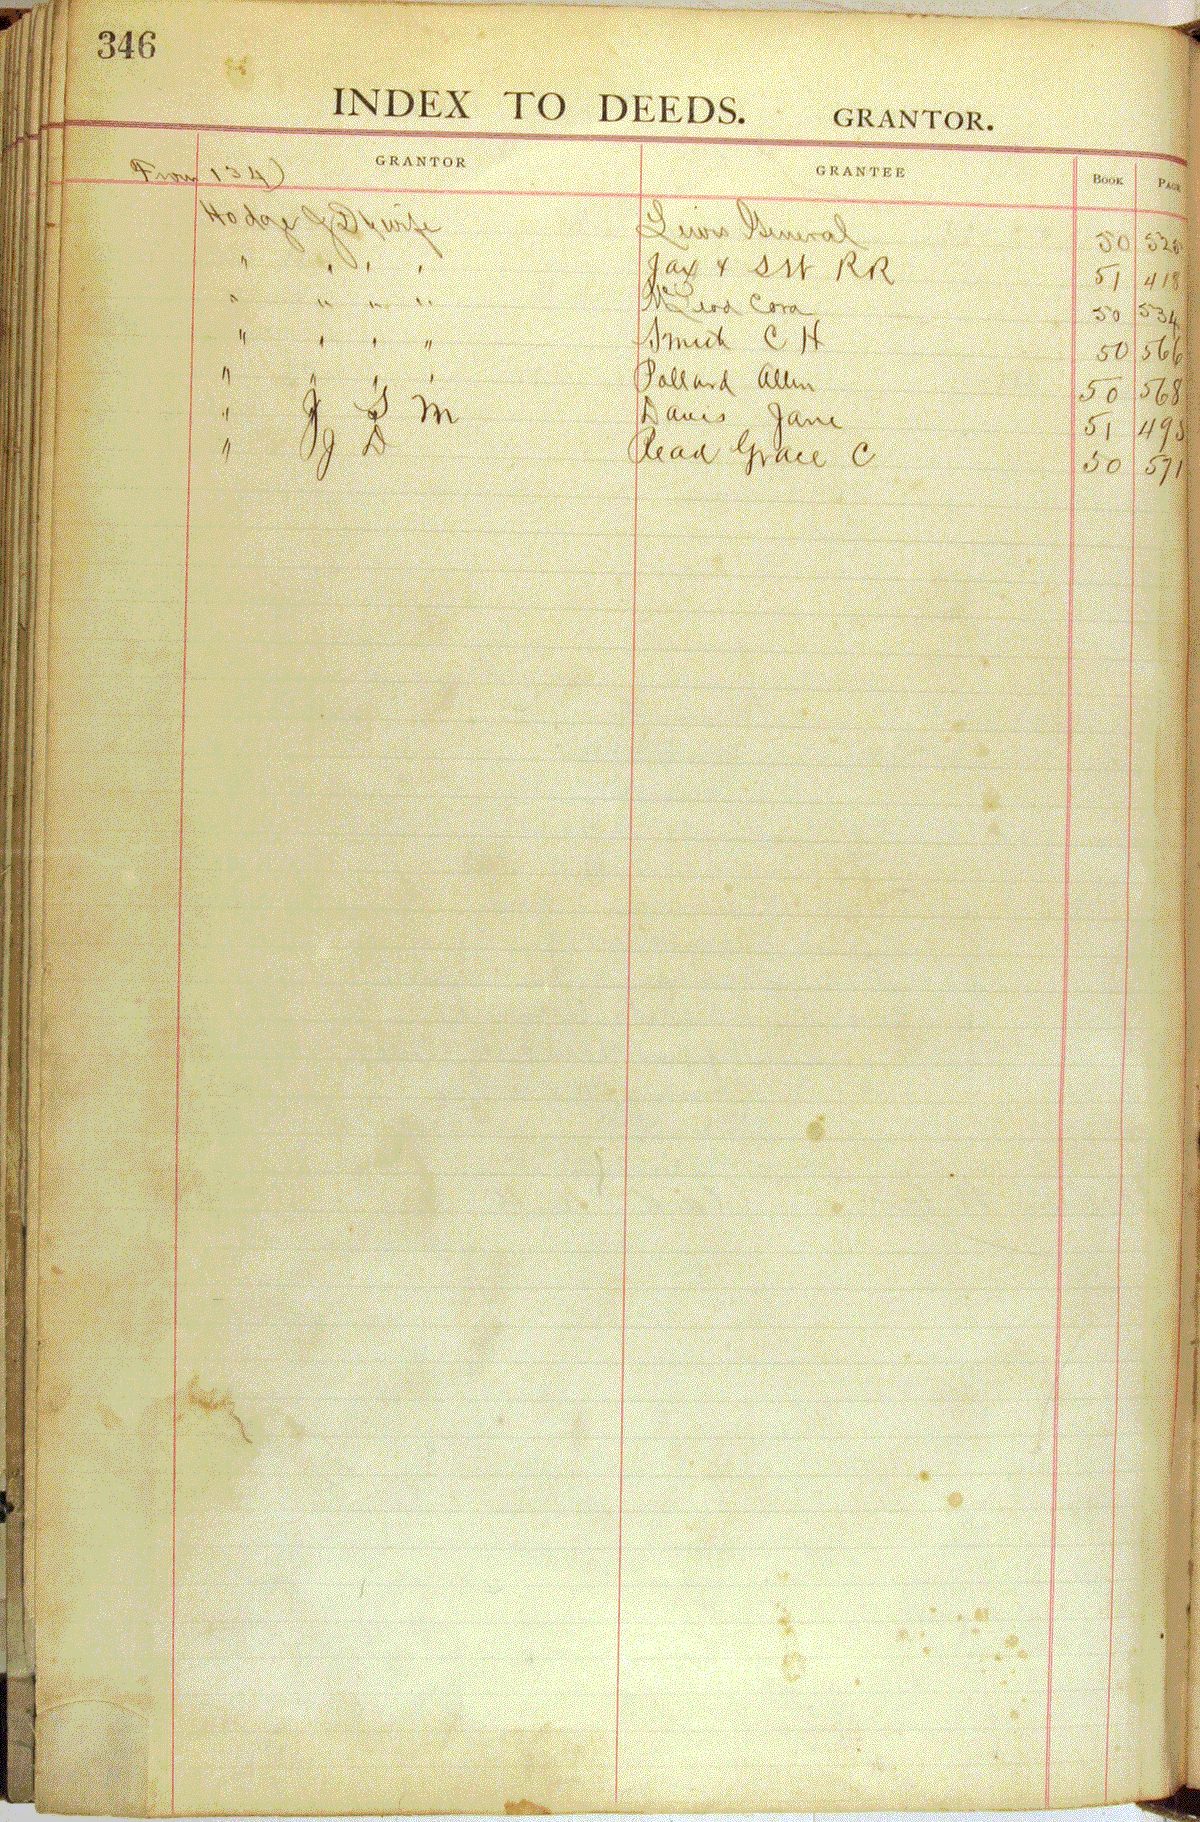 346
INDEX TO DEEDS. GRANTOR.
GRANTOR GRANTEE BOOK PAGE
From 134)
Hodge J D & wife Lewis General 50 528
" " " " Jax & S W RR 51 418
" " " " McLeod Cora 50 534
" " " " Smith C H 50 566
" " " " Pollard Allen 50 568
" J S M Davis Jane 51 495
" J D Read Grace C 50 571